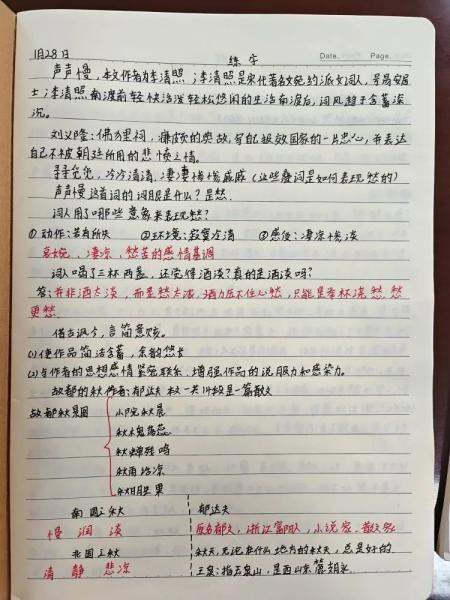 1月28日
练字
Date.
Page.
声声慢,本文作者为李清照;李清照是宋代著名婉约派女词人,号易安居
士;李清照南渡前轻快活泼轻松悠闲的生活南渡后,词风趋于含蓄深
沉。
刘义隆:佛狸祠,廉颇的典故,写自己报效国家的一片忠心,并表达
自己不被朝廷所用的悲愤之情。
寻寻觅觅,冷冷清清,凄凄惨惨戚戚(这些叠词是如何表现愁的)
声声慢这首词的词眼是什么?是愁.
词人用了哪些意象来表现愁?
①动作:若有所失 ②环境:寂寞冷清 ③感受:凄凉惨淡
哀婉、凄凉、愁苦的感情基调
词人喝了三杯两盏,还觉得酒淡?真的是酒淡吗?
答:并非酒太淡,而是愁太浓,酒力压不住心愁,只能是举杯浇愁愁
更愁.
借古讽今,言简意赅。
(1)使作品简洁含蓄,余韵悠长
(2)与作者的思想感情紧密联系,增强作品的说服力和感染力。
故都的秋作者:郁达夫 本文一共14段是一篇散文
故都秋景图
小院秋晨
秋槐落蕊
秋蝉残鸣
秋雨话凉
秋日胜果
南国之秋
慢 润 淡
北国之秋
清 静 悲凉
郁达夫
原名郁文,浙江富阳人,小说家、散文家
秋天,无论在什么地方的秋天,总是好的
玉泉:指玉泉山,是西山东麓支脉